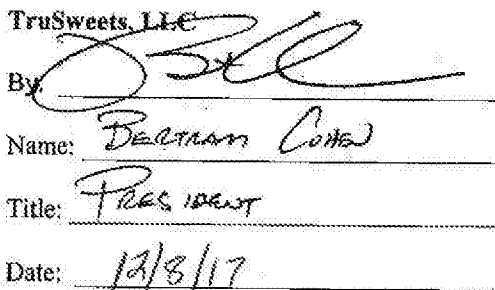 TruSweets, LLC
By:
Name: Bertram Cohen
Title: President
Date: 12/8/17